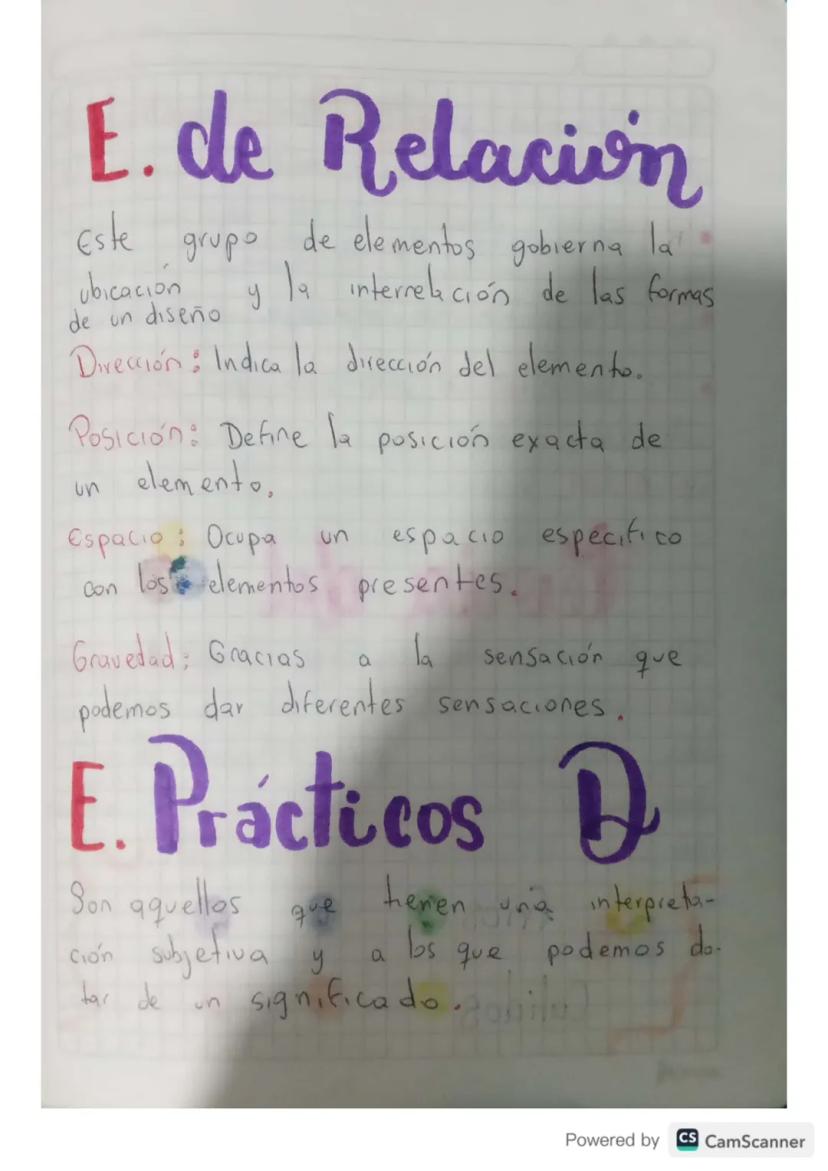 E. de Relación
Este grupo de elementos gobierna la
ubicación y la interrelación de las formas
de un diseño
Dirección: Indica la dirección del elemento.
Posición: Define la posición exacta de
un elemento.
Espacio: Ocupa un espacio especifico
con los elementos presentes.
Gravedad: Gracias a la sensación que
podemos dar diferentes sensaciones.
E. Prácticos D
Son aquellos que tienen una interpreta-
ción subjetiva y a los que podemos do-
tar de un significado.
Powered by CS CamScanner